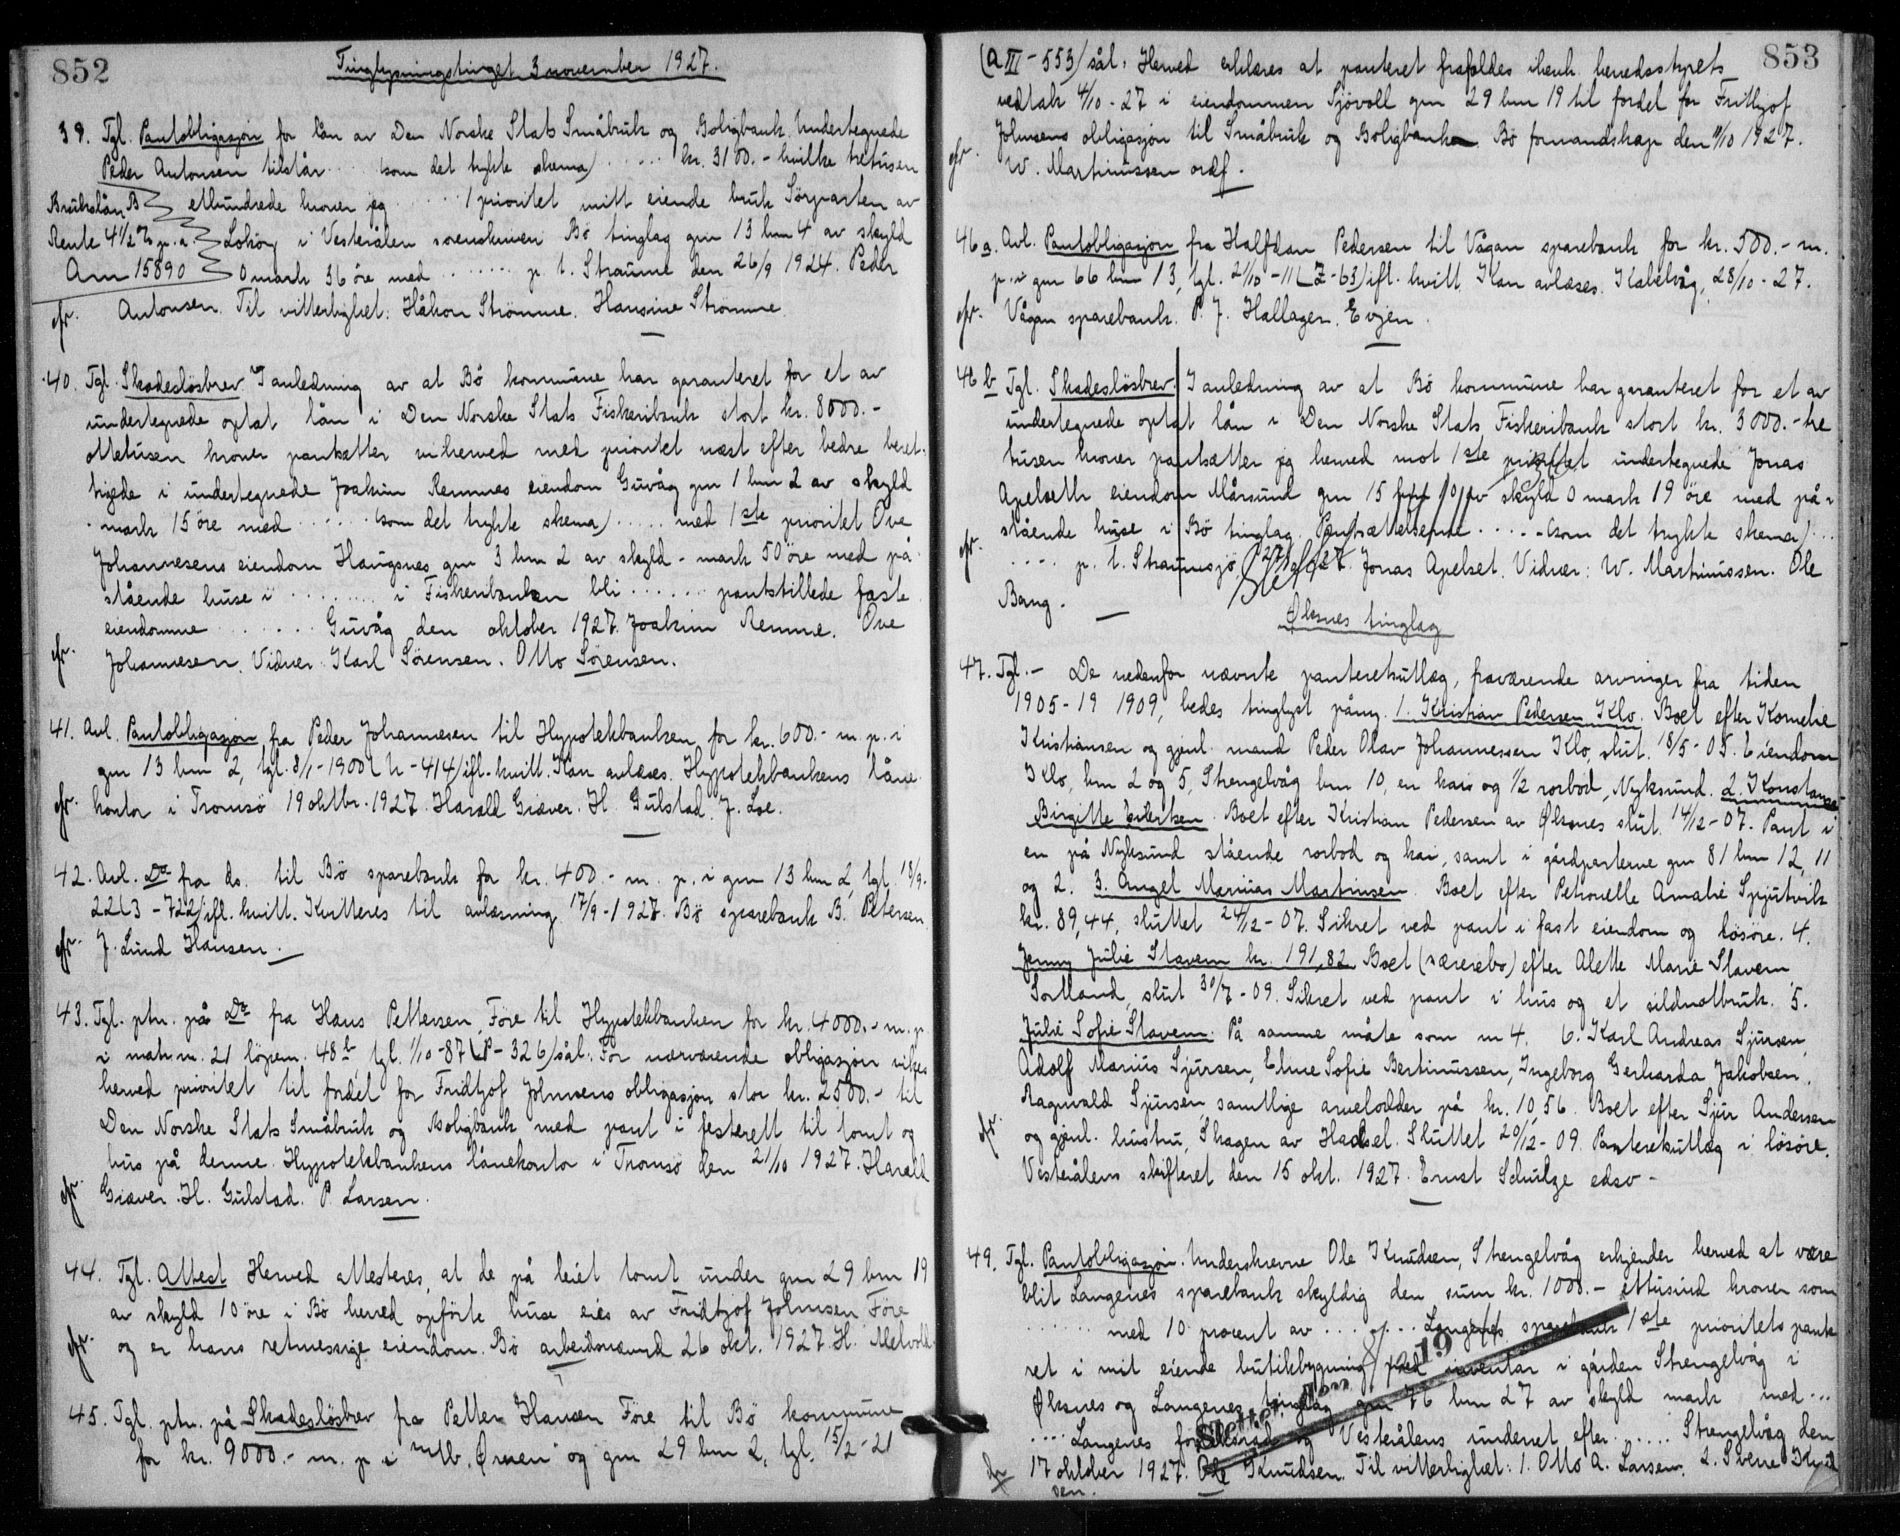 852
Tinglysningstinget 3 november 1927.
39. Tgl. Pantobligasjon for lån av Den Norske Stats Småbruk og Boligbank. Undertegnede
Peder Antonsen tilstår .... (som det trykte skema) ..... kr. 3100.- hvilke tretusen
Brukslån B etthundrede kroner jeg ..... 1 prioritet mitt eiende bruk Sörparten av
Rente 4 1/2 % p.a. i Vesterålen sorenskriveri Bö tinglag gnr 13 bnr 4 av skyld
Anr 15890 0 mark 36 öre med ...... p. t. Straume den 26/9 1924. Peder
efr. Antonsen. Til vitterlighet: Håkon Strömme. Hansine Strömme.
40. Tgl. Skadeslösbrev. I anledning av at Bö kommune har garanteret for et av
undertegnede optat lån i Den Norske Stats Fiskeribank stort kr. 8000.-
ottetusen kroner pantsætter vi herved med prioritet næst efter bedre beret-
tigede i undertegnede Joakim Remmes eiendom Guvåg gnr 1 bnr 2 av skyld
- mark 15 öre med ...... (som det trykte skema) ..... med 1ste prioritet Ove
Johannesens eiendom Haugsnes gnr 3 bnr 2 av skyld - mark 50 öre med på-
stående huse i ......... i Fiskeribanken bli ...... pantstillede faste
eiendomme ....... Guvåg den oktober 1927. Joakim Remme. Ove
efr. Johannesen. Vidner: Karl Sörensen. Otto Sörensen.
41. Avl. Pantobligasjon fra Peder Johannesen til Hypotekbanken for kr. 600.- m. p. i
gnr 13 bnr 2, tgl. 8/1-1900 (h-414) ifl. kvitt. Kan avlæses. Hypotekbankens låne-
efr. kontor i Tromsö 19 oktbr. 1927. Harald Giæver. H. Gulstad. J. Loe.
42. Avl. Do fra ds. til Bö sparebank for kr. 400.- m. p. i gnr 13 bnr 2, tgl. 13/9-
22 (3-722) ifl. kvitt. Kvitteres til avlæsning 17/9-1927. Bö sparebank B. Petersen.
efr. J. Lund Hansen.
43. Tgl. ptn. på Do fra Hans Pettersen, Före til Hypotekbanken for kr. 4000.- m. p.
i matr.nr. 21 löpenr. 48b, tgl. 1/10-87 (P-326) sål: For nærværende obligasjon vikes
herved prioritet til fordel for Fridtjof Johnsens obligasjon stor kr. 2500.- til
Den Norske Stats Småbruk og Boligbank med pant i festerett til tomt og
hus på denne. Hypotekbankens lånekontor i Tromsö den 21/10 1927. Harald
efr. Giæver. H. Gulstad. P. Larsen.
44. Tgl. Attest. Herved attesteres, at de på leiet tomt under gnr 29 bnr 19
av skyld 10 öre i Bö herred opförte huse eies av Fridtjof Johnsen Före
efr. og er hans retmessige eiendom. Bö arbeidsnævnd 26 okt. 1927. H. Melvold
45. Tgl. ptn. på Skadeslösbrev fra Petter Hansen Före til Bö kommune
for kr. 9000.- m. p. i m/b. Ørnen og gnr 29 bnr 2, tgl. 15/2-21
853
(a III-553) sål: Herved erklæres at panteret frafaldes ihenh. herredsstyrets
vedtak 4/10-27 i eiendommen Sjövoll gnr 29 bnr 19 til fordel for Frithjof
Johnsens obligasjon til Småbruk og Boligbanken. Bö formandskap den 10/10 1927.
efr. W. Martinussen ordf.
46a. Avl. Pantobligasjon fra Halfdan Pedersen til Vågan sparebank for kr. 500.- m.
p. i gnr 66 bnr 13, tgl. 21/10-11 (Z-63) ifl. kvitt. Kan avlæses. Kabelvåg, 28/10-27.
efr. Vågan sparebank. P. J. Hallager. Evjen.
46b Tgl. Skadeslösbrev. I anledning av at Bö kommune har garanteret for et av
undertegnede optat lån i Den Norske Stats Fiskeribank stort kr. 3000.- tre
tusen kroner pantsætter jeg herved mot 1ste prioritet undertegnede Jonas
Apelseth eiendom Mårsund gnr 15 av skyld 0 mark 19 öre med på-
stående huse i Bö tinglag. Pantsættelserne ..... (som det trykte skema) ...
efr. .... p. t. Straumsjö, 27/10 27. Jonas Apelset. Vidner: W. Martinussen. Ole
Bang.
Slettet
Øksnes tinglag
47. Tgl. - De nedenfor nævnte panteretsutlæg, fraværende arvinger fra tiden
1905-19 1909, bedes tinglyst påny. 1. Kristian Pedersen Klo. Boet efter Kornelie
Kristiansen og gjenl. mand Peder Olav Johannessen Klo, slut. 18/5-05. Eiendom
Klo, bnr 2 og 5, Strengelvåg bnr 10, en kai og 1/2 rorbod, Nyksund. 2. Konstanse
Birgitte Evertsen. Boet efter Kristian Pedersen av Øksnes slut. 14/12-07. Pant i
en på Nyksund stående rorbod og kai, samt i gårdparterne gnr 81 bnr 12, 11
og 2. 3. Angel Marius Martinsen. Boet efter Petronelle Amalie Spjutvik
kr. 89,44, sluttet 24/12-07. Sikret ved pant i fast eiendom og lösöre. 4.
Jenny Julie Stavem kr. 191,82. Boet (særerebo) efter Alette Marie Stavem
Sortland, slut 30/7-09. Sikret ved pant i hus og et sildnotbruk. 5.
Julie Sofie Stavem. På samme måte som nr 4. 6. Karl Andreas Sjursen,
Adolf Marius Sjursen, Eline Sofie Bertinussen, Ingeborg Gerharda Jakobsen,
Ragnvald Sjursen, samtlige arvelodder på kr. 10,56. Boet efter Sjur Andersen
efr. og gjenl. hustru, Skagen av Hadsel. Sluttet 20/12-09. Panteretsutlæg i lösöre.
Vesterålens skifteret den 15 okt. 1927. Ernst Schulze edsv -
49. Tgl. Pantobligasjon. Underskrevne Ole Knudsen, Strengelvåg erkjender herved at være
blit Langenes sparebank skyldig den sum kr. 1000.- ettusind kroner som
..... med 10 procent av ....... Langenes sparebank 1ste prioritets pante
ret i mit eiende butikbygning med inventar i gården Strengelvåg i
Øksnes og Langenes tinglag gnr 76 bnr 27 av skyld mark med ...
.... Langenes forliksråd og Vesterålens underret efter ..... Strengelvåg den
17 oktober 1927. Ole Knudsen. Til vitterlighet: 1. Otto A. Larsen. 2. Sverre Knud
sen.
Slettet den 19